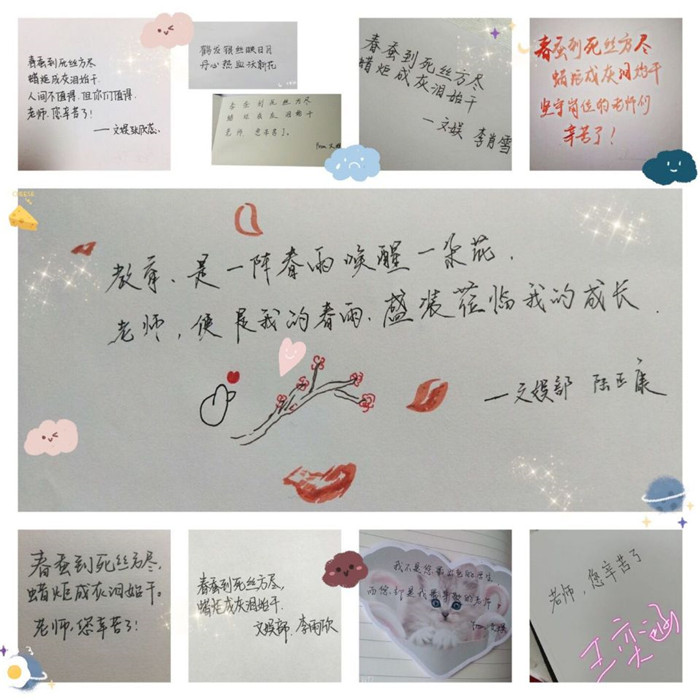 春蚕到死丝方尽
蜡炬成灰泪始干.
人间不值得.但你们值得.
老师.您辛苦了!
——文娱
鹤发银丝映日月
丹心热血沃新花
春蚕到死丝方尽
蜡炬成灰泪始干
老师 您辛苦了.
春蚕到死丝方尽
蜡炬成灰泪始干
——文娱 李肖雪
春蚕到死丝方尽
蜡炬成灰泪始干
坚守岗位的老师们
辛苦了!
CHEESE
教育、是一阵春雨唤醒一朵花.
老师,便是我的春雨.盛装莅临我的成长.
——文娱部 陆正康
春蚕到死丝方尽,
蜡炬成灰泪始干。
老师,您辛苦了!
春蚕到死丝方尽,
蜡炬成灰泪始干.
文娱部.李雨欣
我不是您最出色的学生
而您却是我最尊敬的老师
老师,您辛苦了
王奕涵